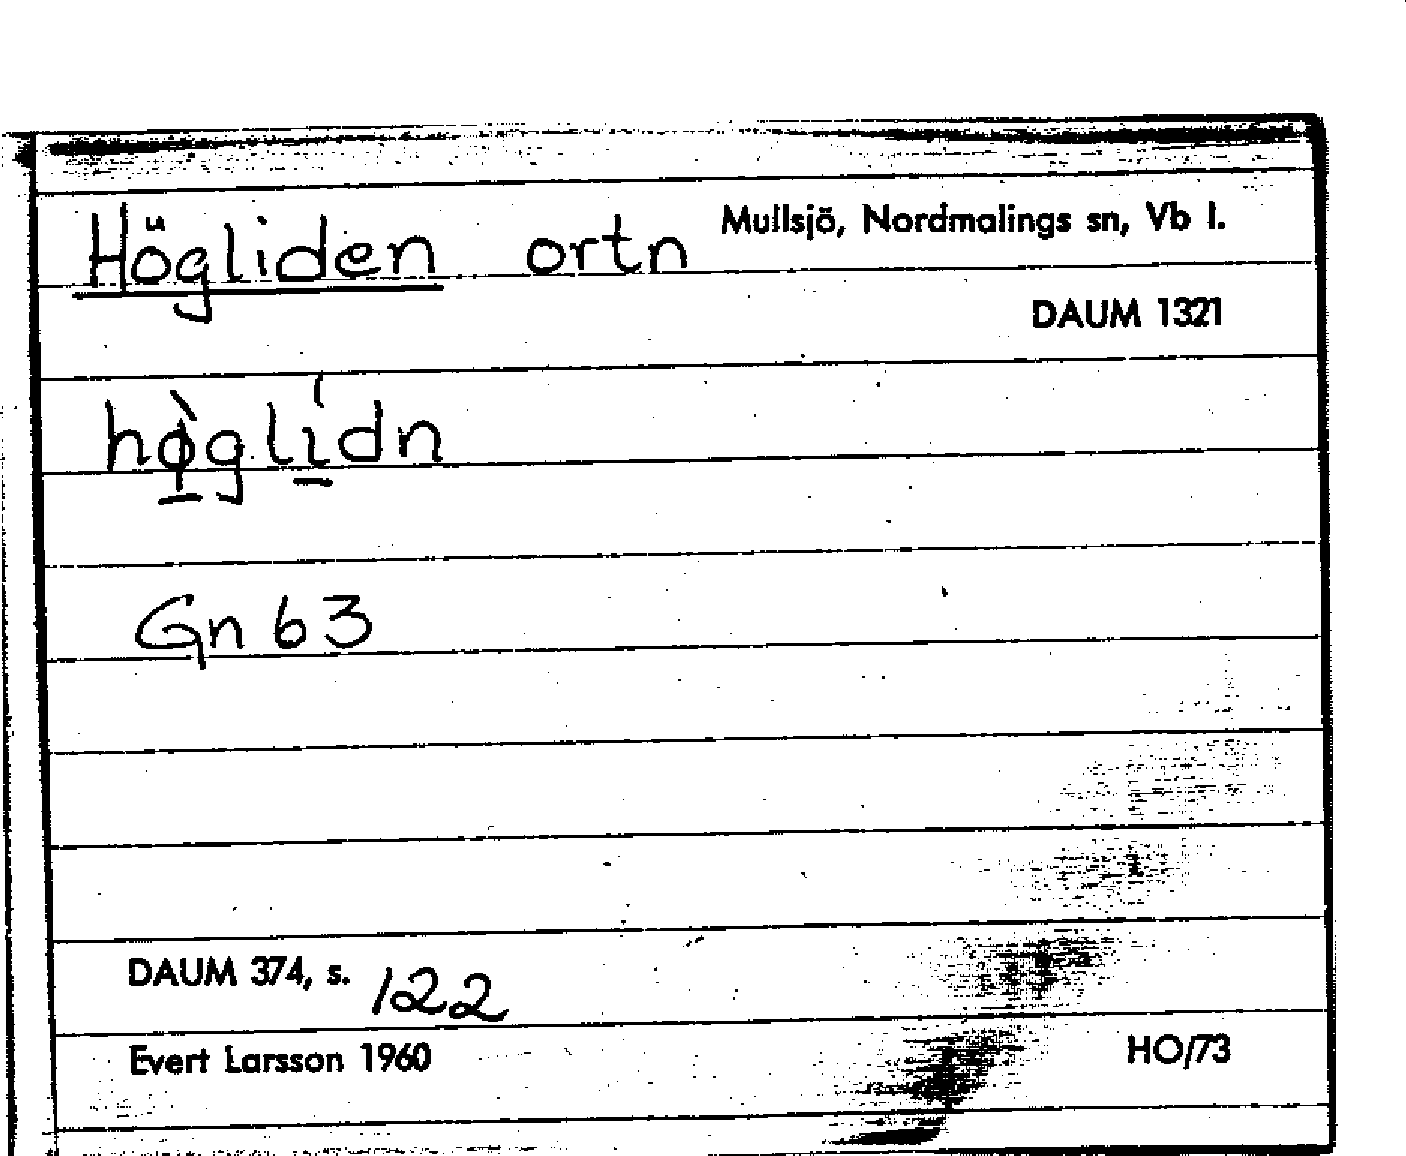 Högliden ortn Mullsjö, Nordmalings sn, Vb l.
DAUM 1321
hø̠̀glí̠dn
Gn 63
DAUM 374, s. 122
Evert Larsson 1960 HO/73